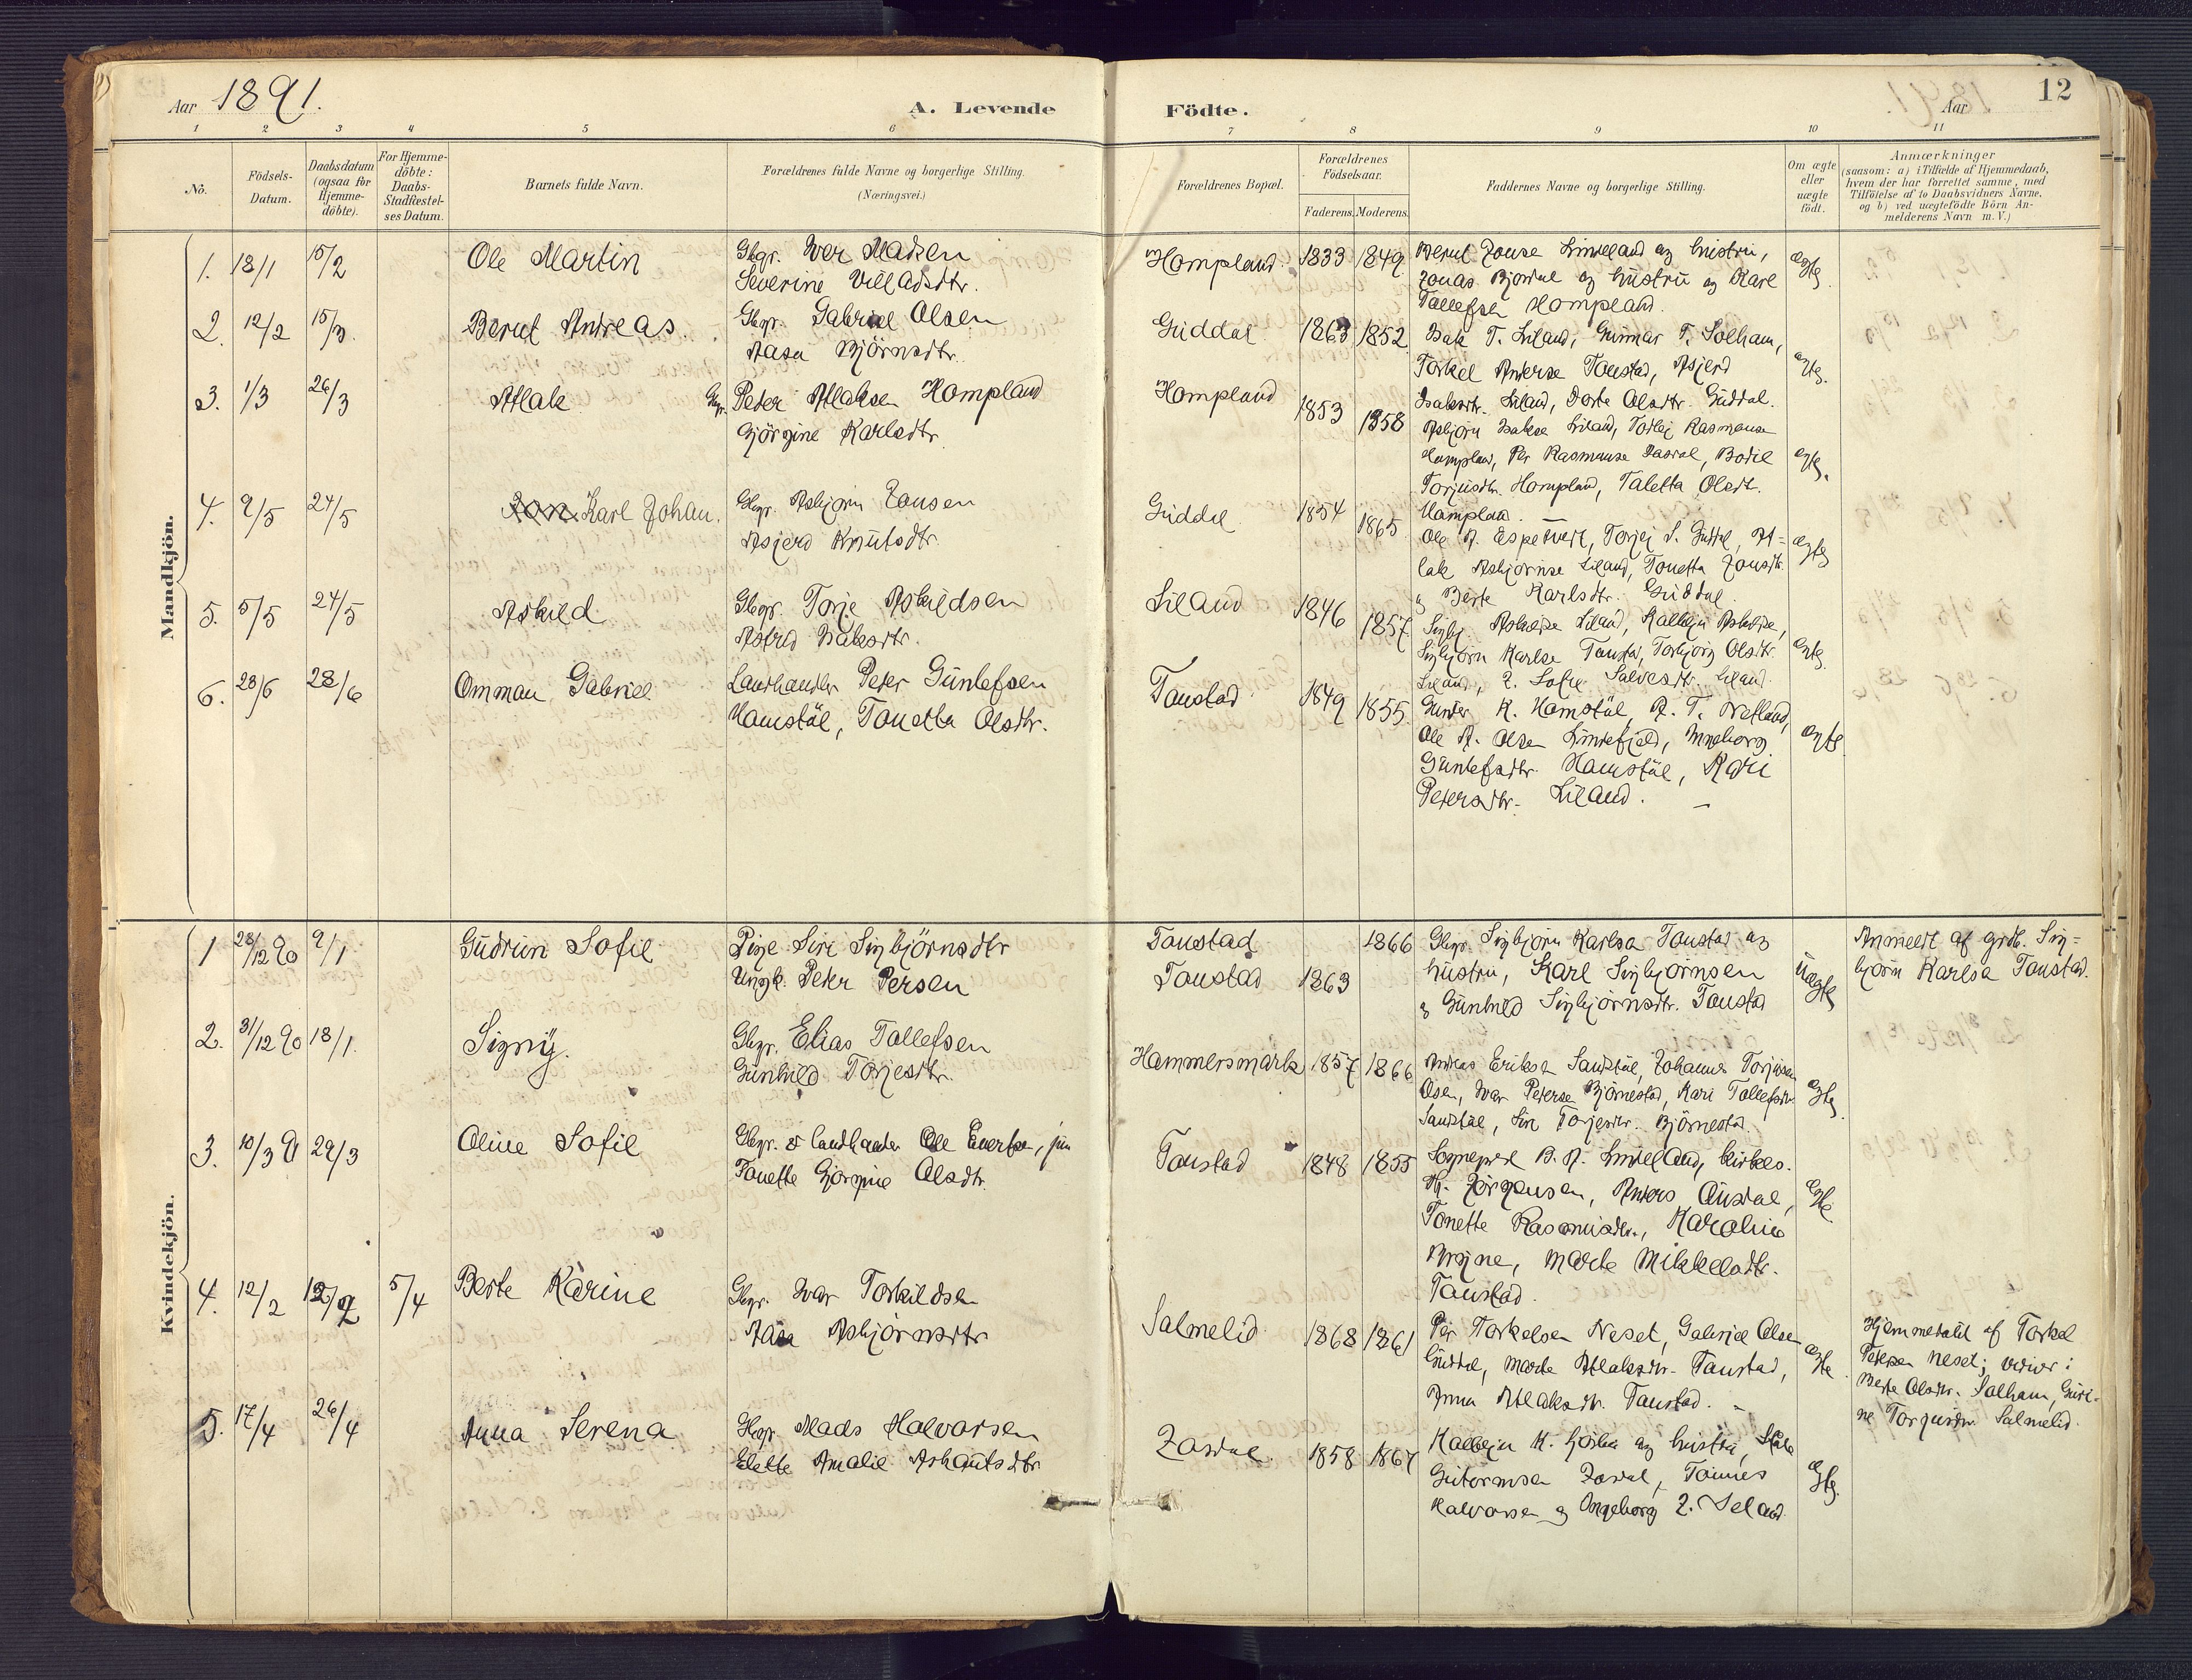 Aar 1891.
A. Levende Födte.
Aar
12
1 2 3 4 5 6 7 8 9 10 11
No.
Födsels-
Datum.
Daabsdatum
(ogsaa for
Hjemme-
döbte).
For Hjemme-
döbte:
Daabs-
Stadfæstel-
ses Datum.
Barnets fulde Navn.
Forældrenes fulde Navne og borgerlige Stilling.
(Næringsvei.)
Forældrenes Bopæl.
Forældrenes
Födselsaar.
Faderens. Moderens.
Faddernes Navne og borgerlige Stilling.
Om ægte
eller
uægte
födt.
Anmærkninger
(saasom: a) i Tilfælde af Hjemmedaab,
hvem der har forrettet samme, med
Tilföielse af to Daabsvidners Navne,
og b) ved uægtefödte Börn An-
melderens Navn m. V.)
Mandkjön.
1. 18/1 15/2 Ole Martin
Gbgr. Iver Madsen
Severine Villadsdtr.
Hompland 1833 1849
Berut Jonse Lindeland og hustru,
Jonas Bjordal og hustru og Karl
Tallefsen Hompland.
ægte
2. 12/2 15/3 Berut Andreas
Gbgr. Gabriel Olsen
Aasa Björnsdtr.
Guddal 1863 1852
Isak T. Liland, Gunnar T. Solham,
Torkel Anderse Tonstad, Asjerd
Isaksdtr. Liland, Dorte Olsdtr. Guddal.
ægte.
3. 1/3 26/3 Atlak
Gbgr. Peder Atlaksen Hompland
Gjörgine Karlsdtr.
Hompland 1853 1858
Asbjörn Isakse Liland, Tarlej Rasmause
Hompland, Per Rasmuse Josdal, Bodil
Torjusdtr. Hompland, Taletta Olsdt.
Hompland.
ægte.
4. 9/5 24/5 Karl Johan.
Gbgr. Asbjörn Jonsen
Asjerd Knutsdtr.
Guddal 1854 1865
Ole A. Espetveit, Torjej S. Guddal, At-
lak Asbjörnse Liland, Tonetta Jonsdtr.
og Berte Karlsdtr. Guddal.
ægte
5. 5/5 24/5 Askild
Gbgr. Torje Askildsen
Astrid Isaksdtr.
Liland 1846 1857
Askildse Liland, Kallejn Askildse,
Sigbjörn Karlse Tonstad, Torbjörg Olsdtr.
Liland, J. Sofie Salvesdtr. Liland.
ægte.
6. 23/6 28/6 Omman Gabriel
Landhandler Peder Gunlefsen
Hamstöl, Tonetta Olsdtr.
Tonstad 1849 1855
Gunder K. Hamstöl, A. T. Netland,
Ole A. Olsen Lindefjeld, Ingeborg
Gunlefsdtr. Hamstöl, Kari
Pedersdtr. Liland. –
ægte
Kvindekjön.
1 28/12 90 9/1 Gudrun Sofie
Pige Siri Sigbjörnsdtr
Ungk. Peder Persen
Tonstad 1866
Tonstad 1863
Gbgr. Sigbjörn Karlse Tonstad og
hustru, Karl Sigbjörnsen
og Gunhild Sigbjörnsdtr. Tonstad
uægte
Anmeldt af grdb. Sig-
björn Karlse Tonstad.
2. 31/12 90 18/1. Signy.
Gbgr. Elias Tallefsen
Gunhild Torjesdtr.
Hammersmark 1857 1866
Andreas Eriksen Sandstöl, Johannes Torjusen
Osen, Ivar Peterse Björnestad, Kari Tallefsdtr.
Sandstöl, Siri Torjesdtr. Björnestad.
ægte.
3. 10/3 91 29/3 Oline Sofie
Gbgr. & landhandler Ole Evertsen, jun
Tonette Gjorgine Olsdtr.
Tonstad 1848 1855
Sogneprest B. A. Lindeland, kirkes.
Th. Jörgensen, Anders Ousdal,
Tonette Rasmusdtr., Karoline
Bryne, Marte Mikkelsdtr.
Tonstad.
ægte.
4. 12/2 5/4 Berte Karine
Gbgr. Ivar Torkildsen
Aasa Asbjörnsdtr
Salmelid 1868 1861
Per Torkelsen Neset, Gabriel Olsen
Guddal, Marte Atlaksdtr. Tonstad,
Anna Atlaksdtr. Tonstad. –
ægte
Hjemmedöbt af Torkel
Petersen Neset; vidner:
Berte Olsdtr. Solham, Guri-
ne Torjusdtr Salmelid.
5. 17/4 26/4 Anna Serena
Gbgr. Mads Halvorsen
Elette Amalie Ashautsdtr
Josdal. 1858 1867
Kallejn K. og hustru,
Gutormsen Josdal, Tönnes
Halvorsen og Ingeborg J. Seland
ægte.